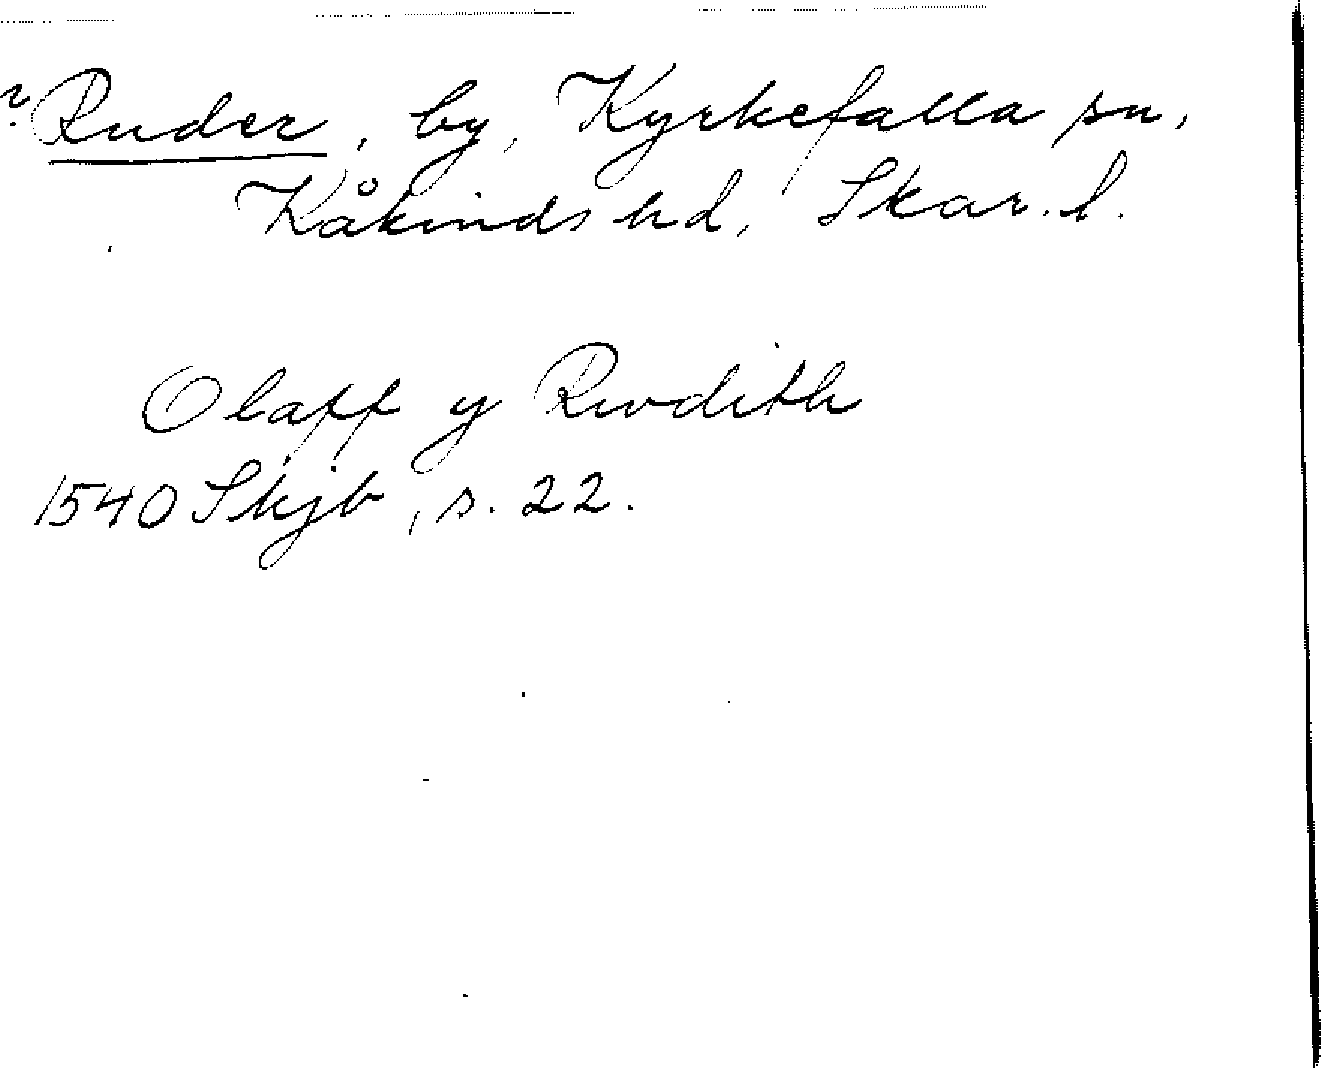 ? Ruder, by, Kyrkefalla sn,
Kåkinds hd, Skar. l.
Olaff y Rwdith
1540 Skjb, s. 22.